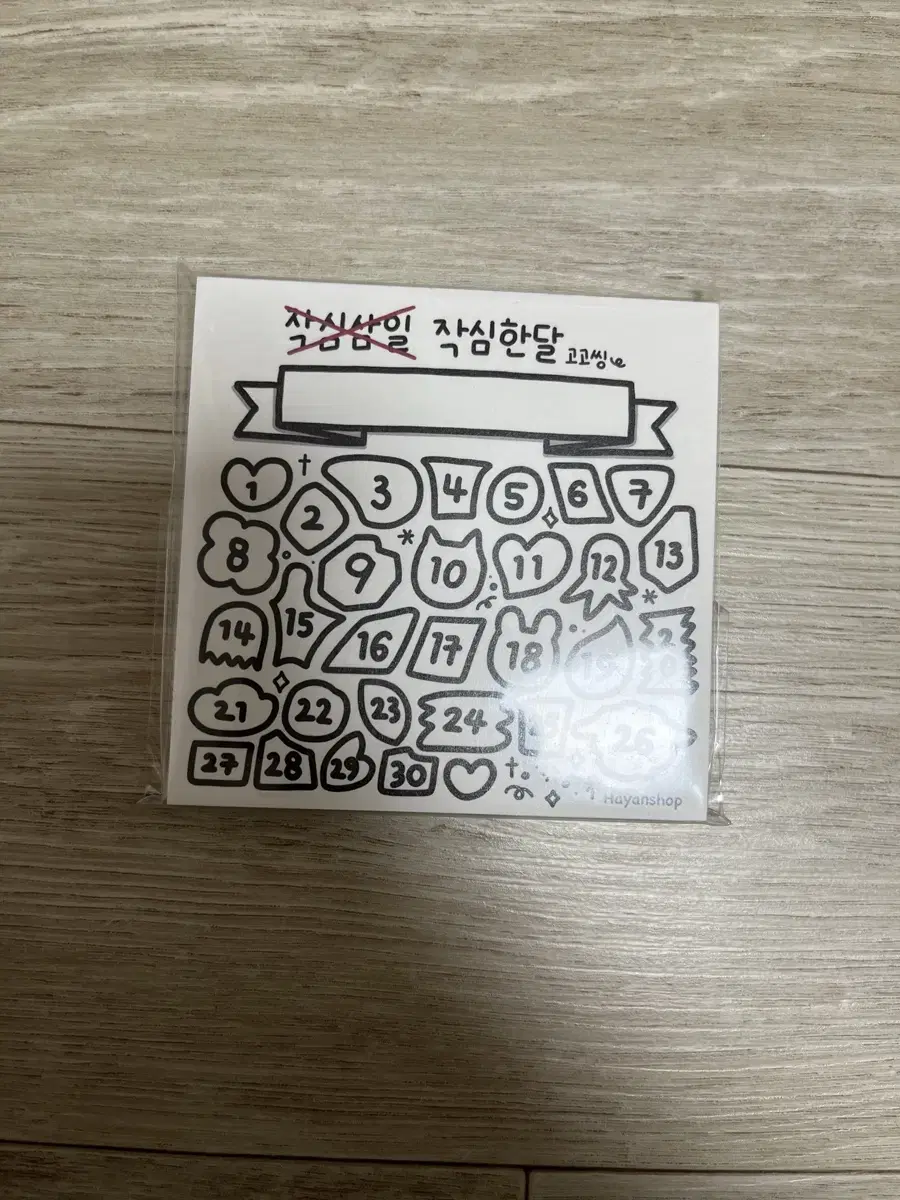 작심삼일 작심한달 고고씽
1 2 3 4 5 6 7
8 9 10 11 12 13
14 15 16 17 18 19 20
21 22 23 24 25 26
27 28 29 30
Hayanshop